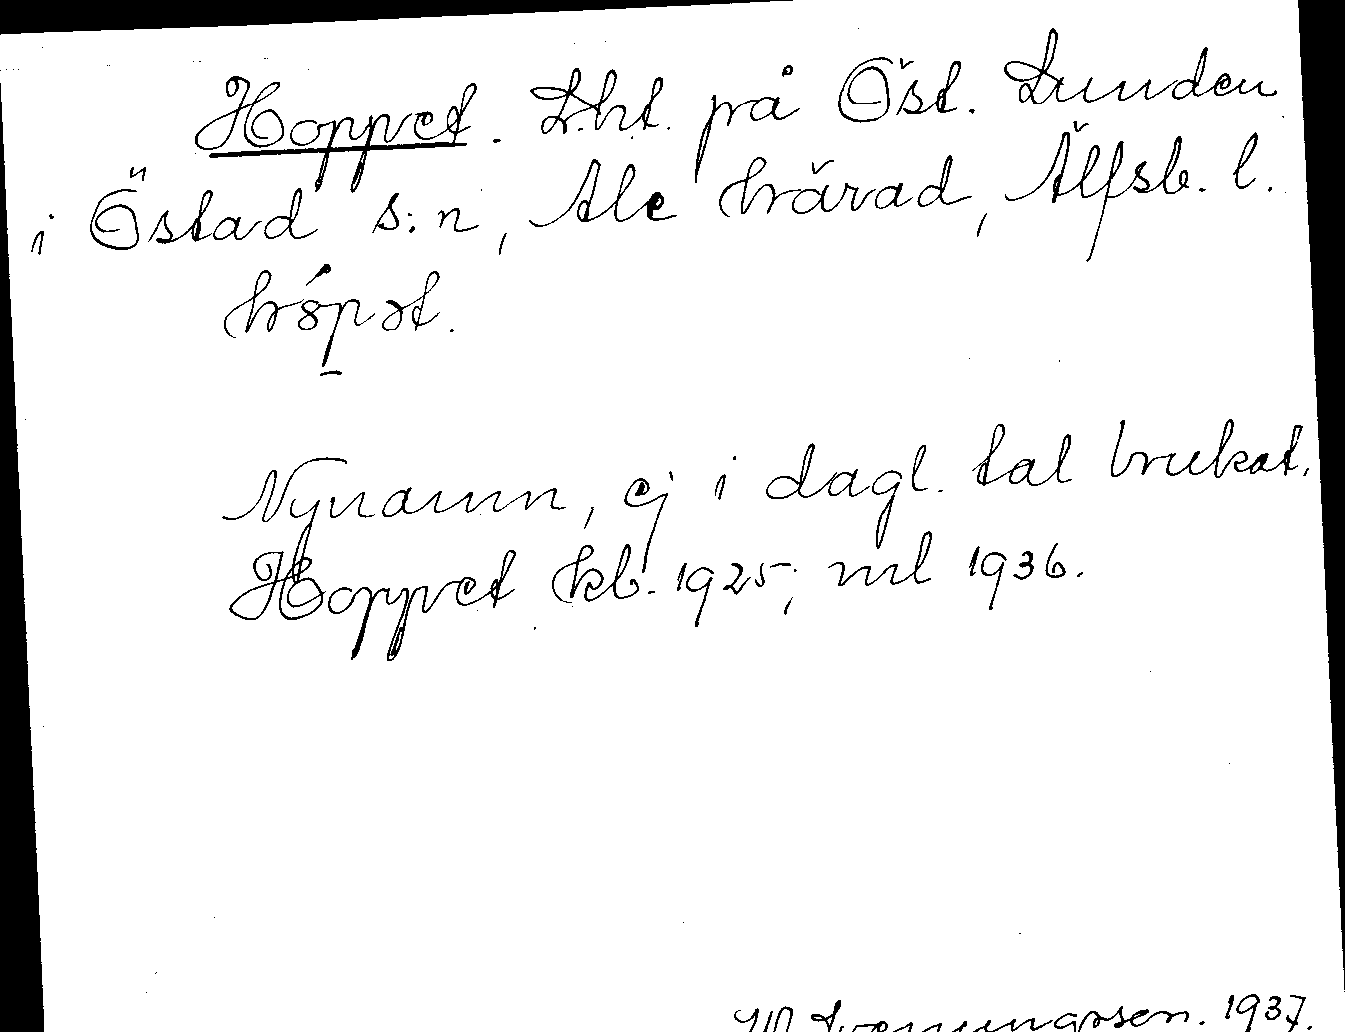 Hoppet. Lht. på Öst. Lunden
i Östad s:n, Ale härad, Älfsb. l.
hópət.
Nynamn, ej i dagl. tal brukat.
Hoppet kb. 1925; ml 1936.
1937.